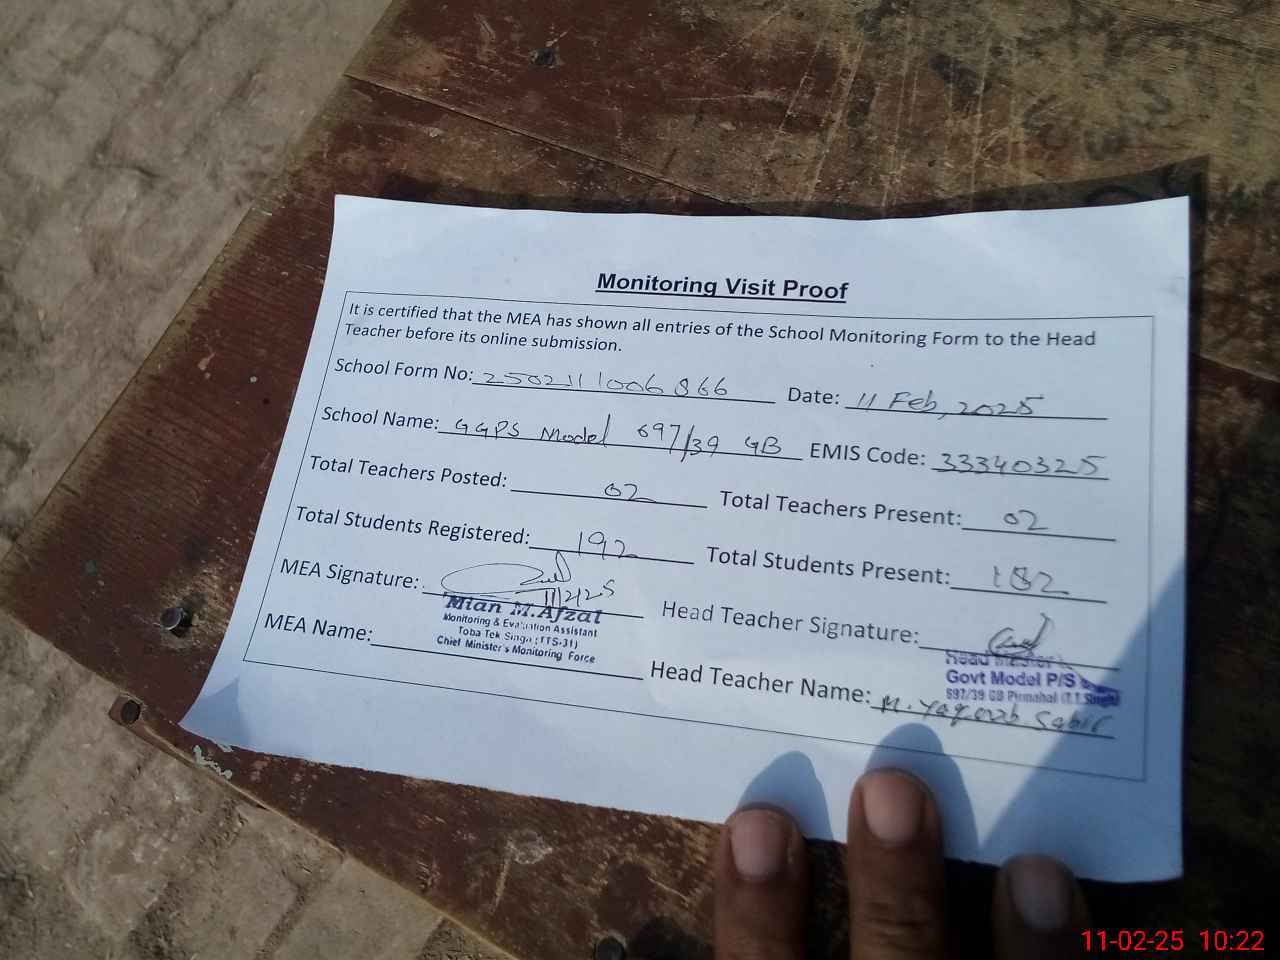 Monitoring Visit Proof
It is certified that the MEA has shown all entries of the School Monitoring Form to the Head
Teacher before its online submission.
School Form No: 2502111006866 Date: 11 Feb, 2025
School Name: GGPS Model 697/39 GB EMIS Code: 33340325
Total Teachers Posted: 02 Total Teachers Present: 02
Total Students Registered: 192 Total Students Present: 182
MEA Signature: 11/2/25 Head Teacher Signature:
Mian M.Afzal
Monitoring & Evaluation Assistant
Toba Tek Singh (TTS-31)
Chief Minister's Monitoring Force
MEA Name: Head Teacher Name: M. Yaqoob Sabir
Head Master
Govt Model P/S
697/39 GB Pirmahal (T.T.Singh)
11-02-25 10:22